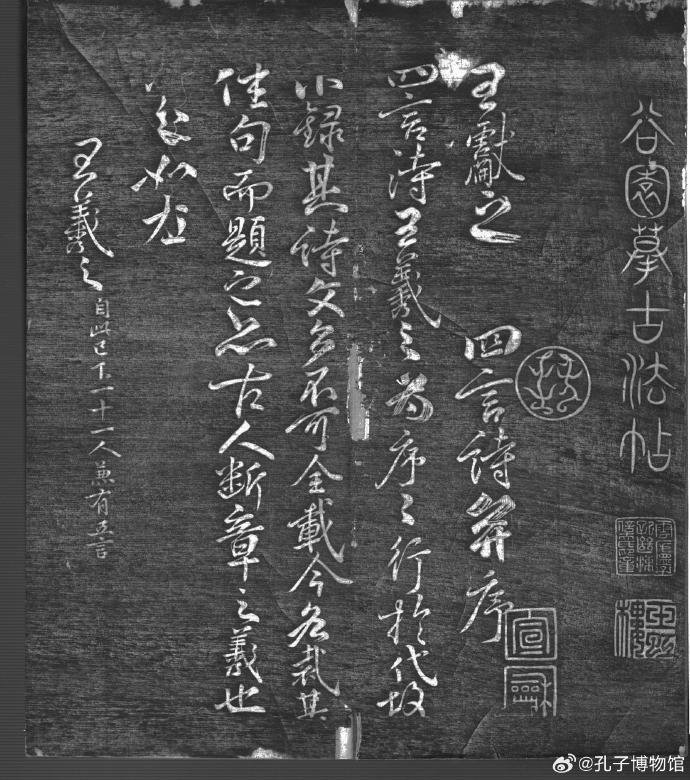 谷園摹古法帖
王獻之 四言詩并序
四言詩王羲之為序〻行於代故
不錄其詩文多不可全載今各裁其
佳句而題之亦古人斷章之義也
如左
王羲之 自此已下一十一人兼有五言
宣龢
@孔子博物馆